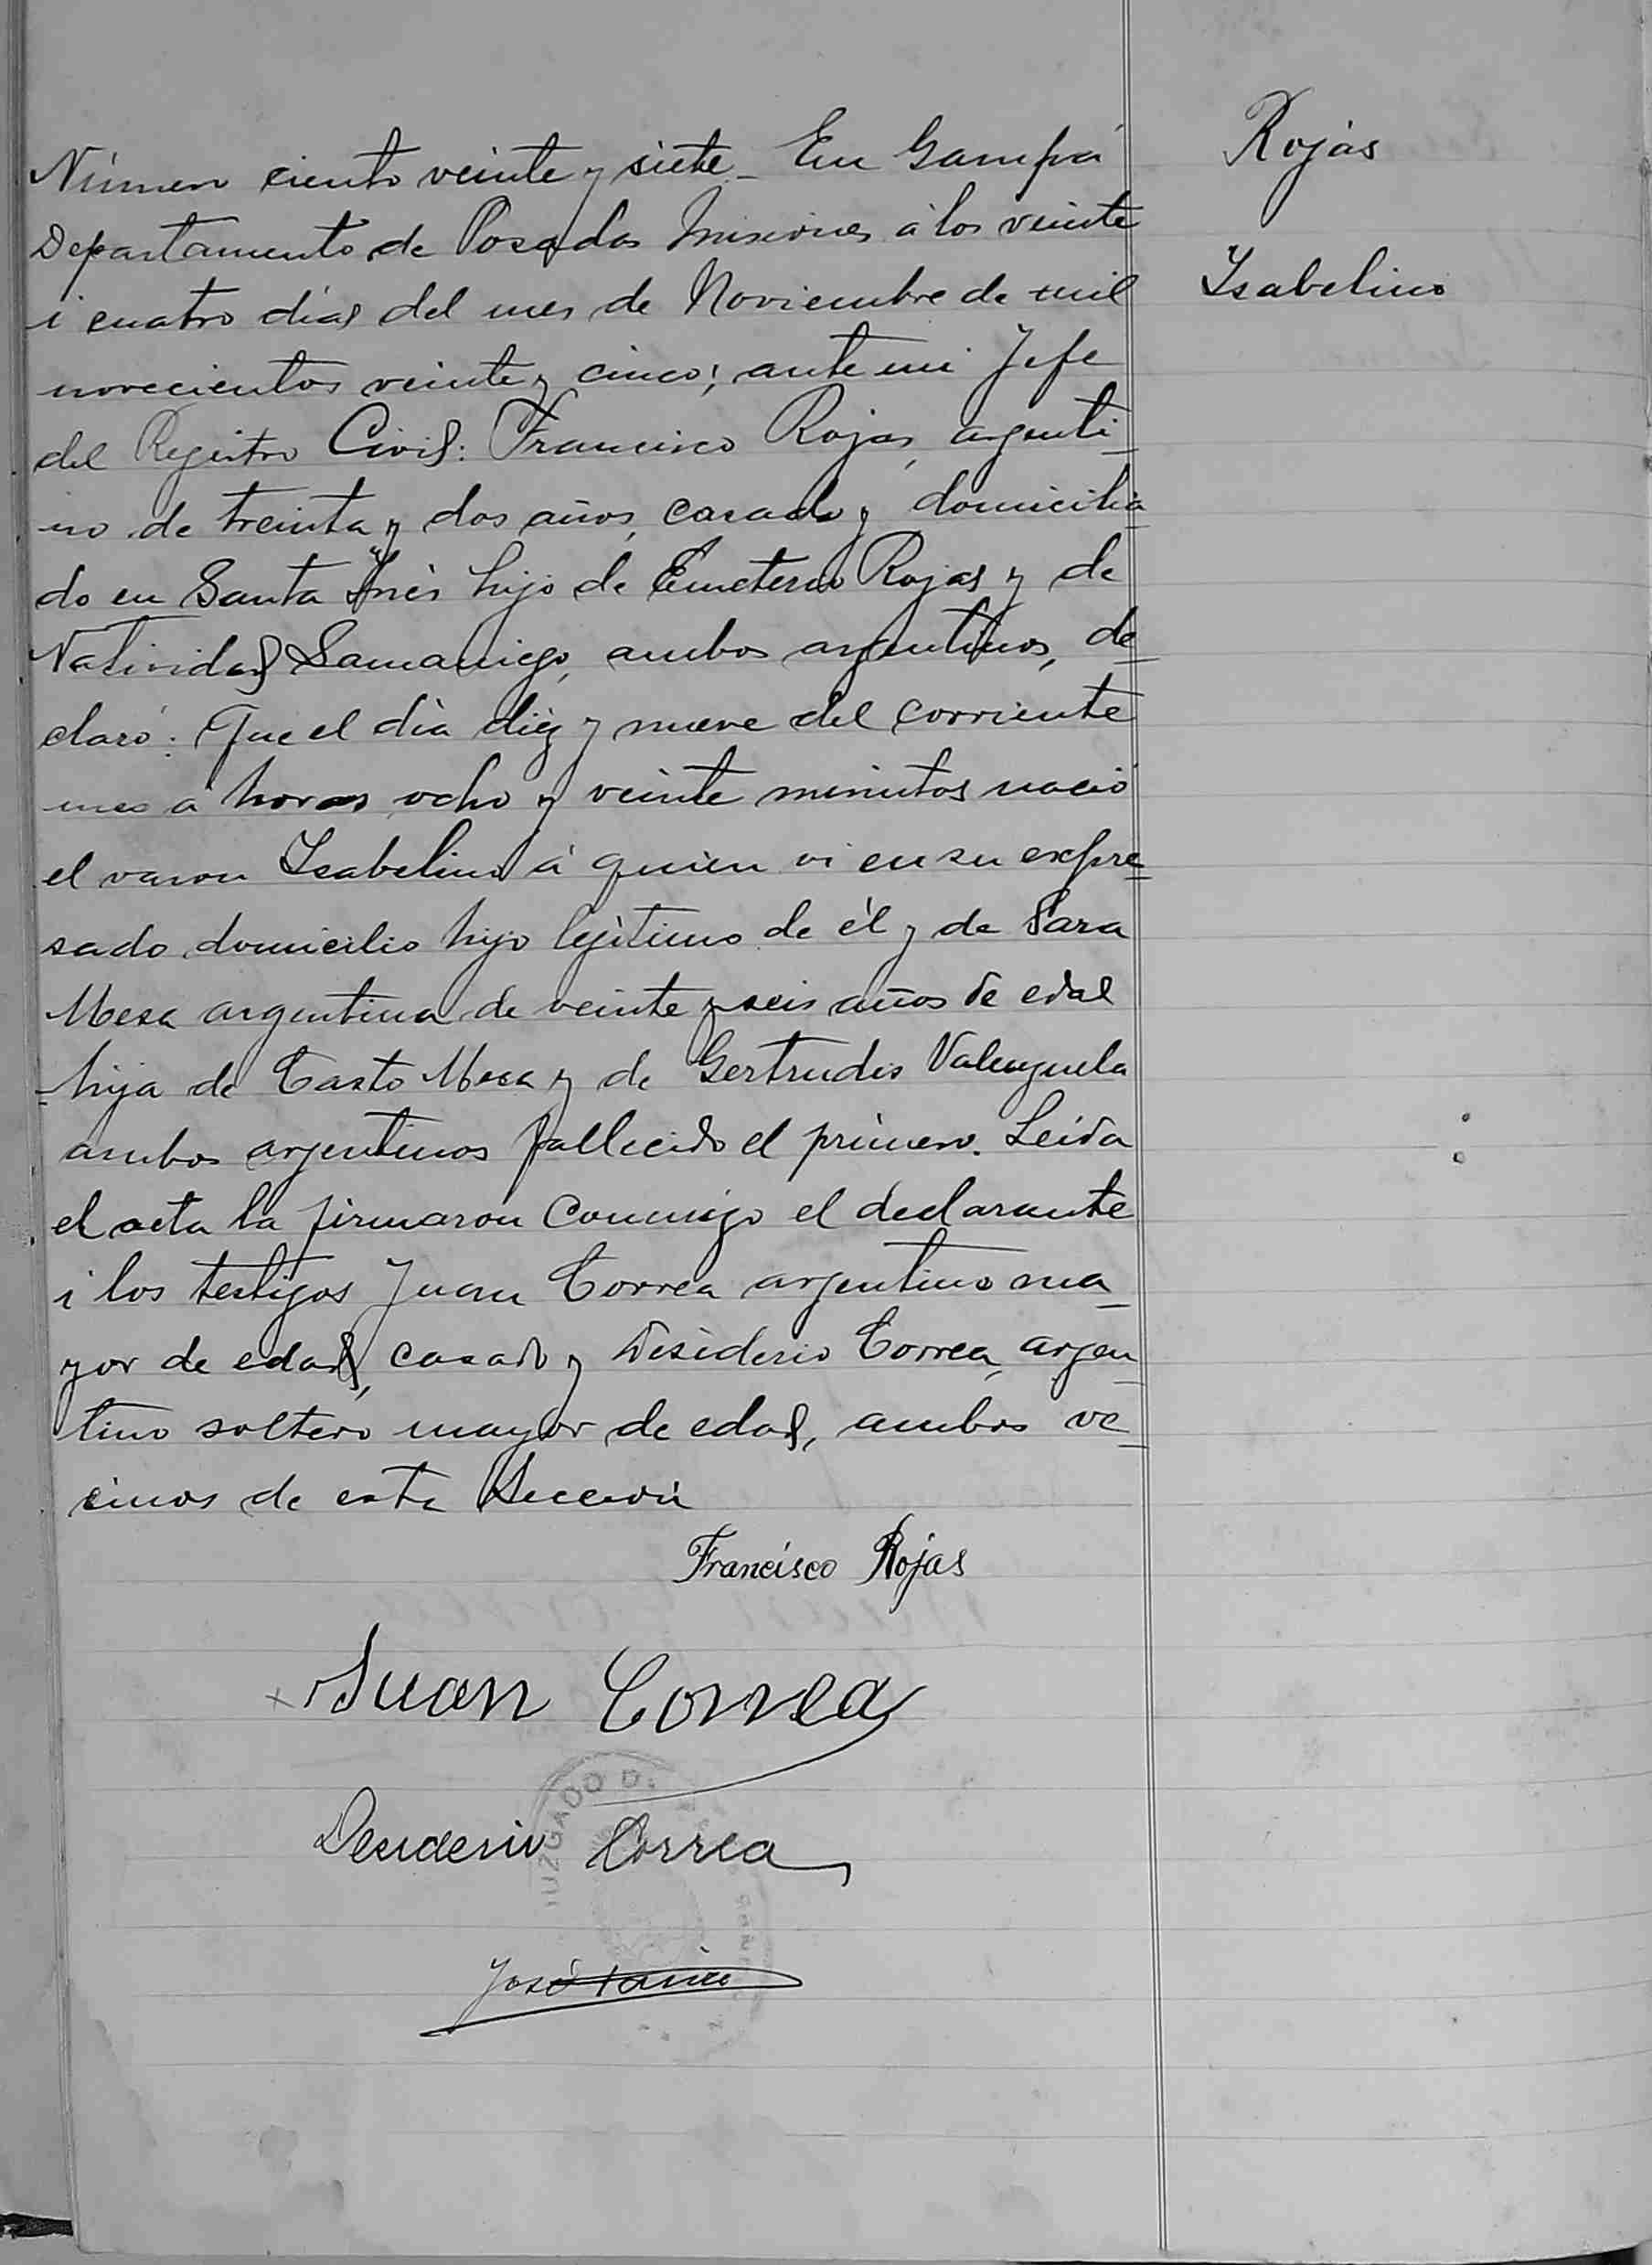 Rojas
Isabelino
Número ciento veinte y siete_ En Garupá
Departamento de Posadas Misiones á los veinte
i cuatro días del mes de Noviembre de mil
novecientos veinte y cinco; ante mi Jefe
del Registro Civil: Francisco Rojas, argenti_
no de treinta y dos años, casado y domicilia_
do en Santa Inés hijo de Emeterio Rojas y de
Natividad Samaniego, ambos argentinos, de_
claró: Que el día diez y nueve del corriente
mes á horas ocho y veinte minutos nació
el varon Isabelino á quien vi en su expre_
sado domicilio hijo legítimo de él y de Sara
Mesa argentina de veinte y seis años de edad
hija de Casto Mesa y de Gertrudis Valenzuela
ambos argentinos fallecido el primero. Leida
el acta la firmaron conmigo el declarante
i los testigos Juan Correa argentino ma_
yor de edad, casado y Desiderio Correa, argen_
tino soltero mayor de edad, ambos ve_
cinos de esta Sección
Francisco Rojas
Juan Correa
Desiderio Correa
José
JUZGADO D